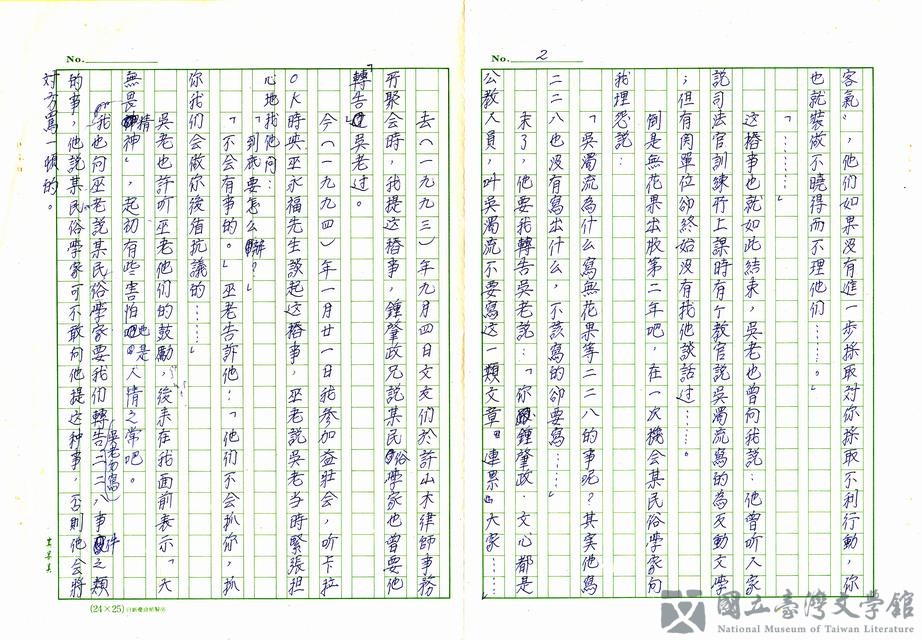 No. 2
客氣」,他們如果沒有進一步採取对你採取不利行動,你
也就裝做不曉得而不理他们……。」
「………」
這樁事也就如此結束,吳老也曾向我說:他曾听人家
説司法官訓練所上課時有个教官説吳濁流寫的為反動文学
;但有関單位卻終始没有找他談話过……。
倒是無花果出版第二年吧,在一次機会某民俗學家向
我埋怨說:
「吳濁流為什么寫無花果等二二八的事呢?其实他寫
二二八也没有寫出什么,不該寫的卻要寫……」
末了,他要我轉告吳老説:「你跟鍾肇政・文心都是
公教人員,叫吳濁流不要寫這一類文章『連累』大家……
No.
去(一九九三)年九月四日文友们於許山木律師事務
所聚会時,我提這樁事,鍾肇政兄説某民俗學家也曾要他
轉告吳老过。
今(一九九四)年一月廿一日我参加益壯会,听卡拉
OK時與巫永福先生談起這樁事,巫老説吳老当時緊張担
心地找他問:
「到底要怎么辦?」
「不会有事的。」巫老告訴他:「他们不会抓你,抓
你我们会做你後盾抗議的……」
吳老也許听巫老他們的鼓勵,後来在我面前表示「大
無畏精神」,起初有些害怕也是人情之常吧。
我也向巫老說某民俗學家要我们轉告吳老勿寫二二八事件之類
的事,他説某民俗學家可不敢向他提這种事,否則他会將
对方罵一頓的。
(24×25)
國立臺灣文學館
National Museum of Taiwan Literature